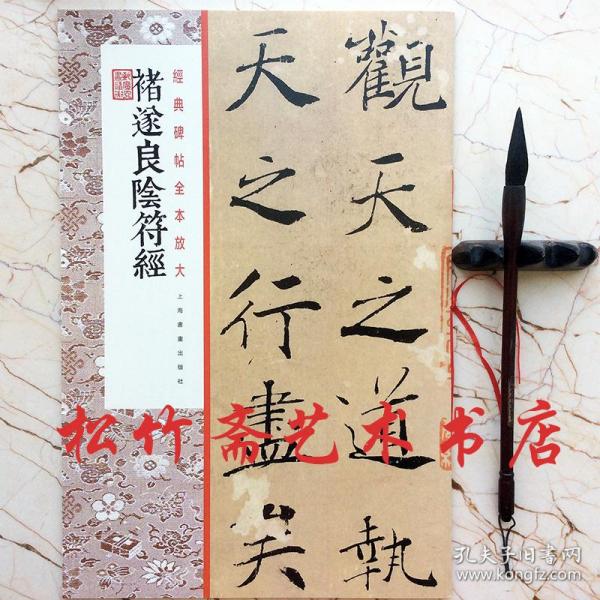 經典碑帖全本放大
褚遂良陰符經
上海書畫出版社
觀天之道執
天之行盡矣
松竹斋艺术书店
孔夫子旧书网
www.kongfz.com